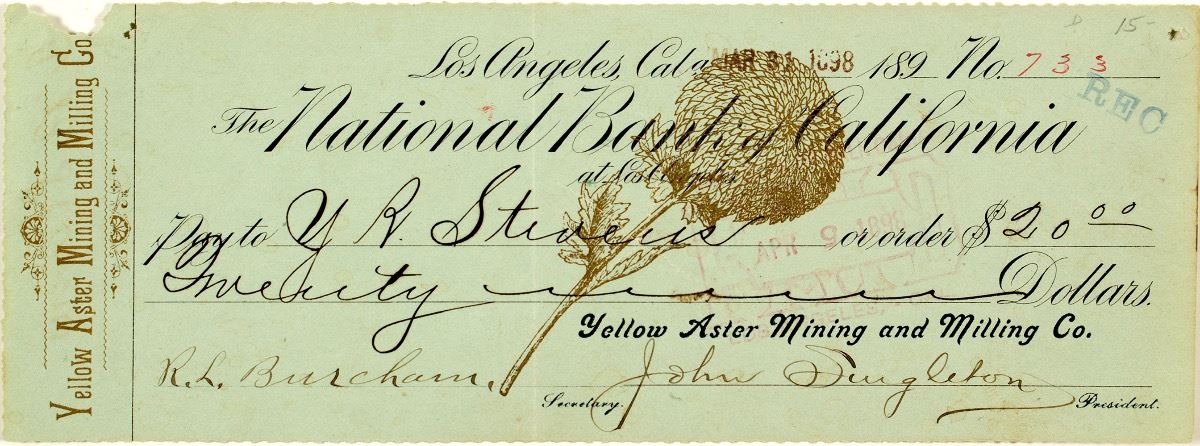 Yellow Aster Mining and Milling Co.
D 15-
Los Angeles, Cala. MAR 31 1898 189 No. 733
REC
The National Bank of California
at Los Angeles
Pay to Y R. Stevens or order $20 00
APR 9 1898
Twenty Dollars.
Yellow Aster Mining and Milling Co.
R. L. Burcham, John Singleton
Secretary. President.